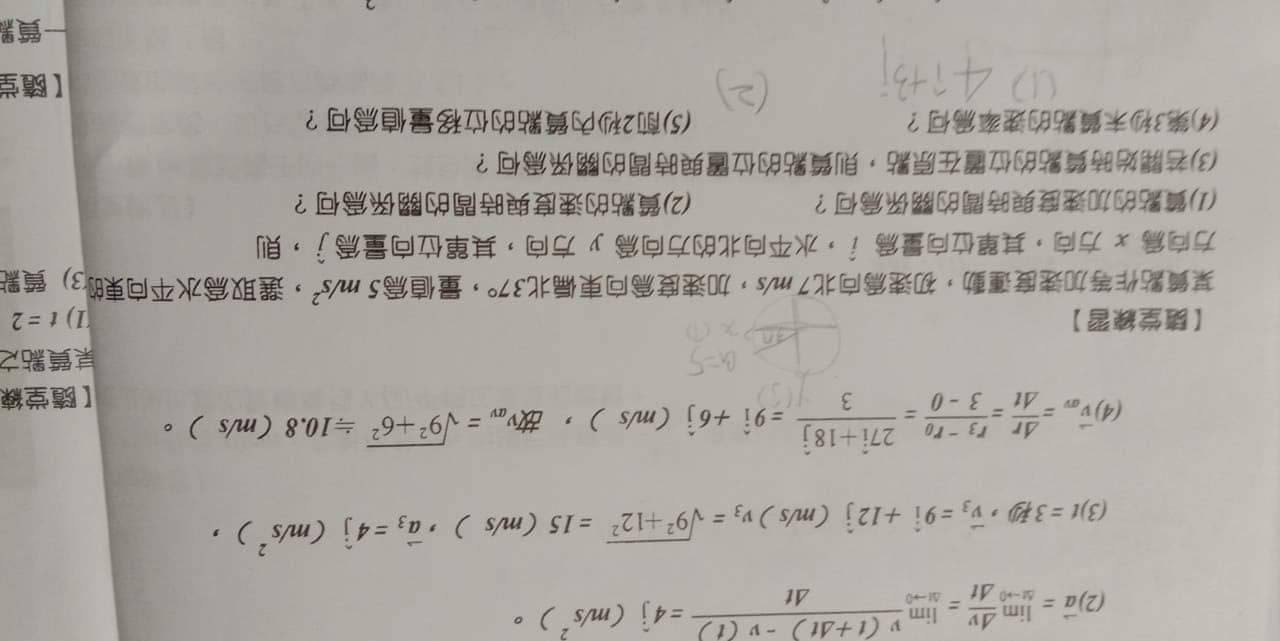 (2) a⃗ = lim Δt→0 Δv/Δt = lim Δt→0 (v(t+Δt) − v(t))/Δt = 4ĵ（m/s²）。
(3) t = 3秒，v⃗₃ = 9î + 12ĵ（m/s）v₃ = √(9²+12²) = 15（m/s），a⃗₃ = 4ĵ（m/s²），
(4) v⃗av = Δr⃗/Δt = (r₃ − r₀)/(3 − 0) = (27î + 18ĵ)/3 = 9î + 6ĵ（m/s），故vav = √(9²+6²) ≒ 10.8（m/s）。
a=5
37
【隨堂練習】
某質點作等加速度運動，初速為向北7 m/s，加速度為向東偏北37°，量值為5 m/s²，選取為水平向東的
方向為 x 方向，其單位向量為 î，水平向北的方向為 y 方向，其單位向量為 ĵ，則
(1)質點的加速度與時間的關係為何？ (2)質點的速度與時間的關係為何？
(3)若開始時質點的位置在原點，則質點的位置與時間的關係為何？
(4)第3秒末質點的速率為何？ (5)前2秒內質點的位移量值為何？
(1) 4î+3ĵ (2)
【隨堂練
某質點之
(1) t = 2
(3) 質點
【隨堂
一質點